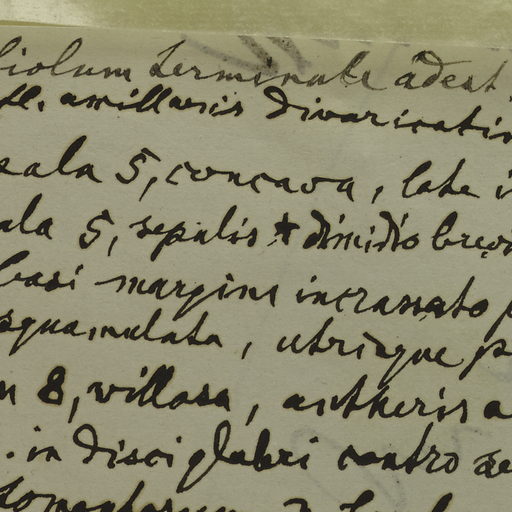 foliolum terminale adest
fl. axillaris divaricatis
sepala 5, concava, late i
petala 5, sepalis ± dimidio brevi
basi margine incrassato p
squamulata, utrinque p
m 8, villosa, antheris a
. in disci glabri centro se
tomentosum 3